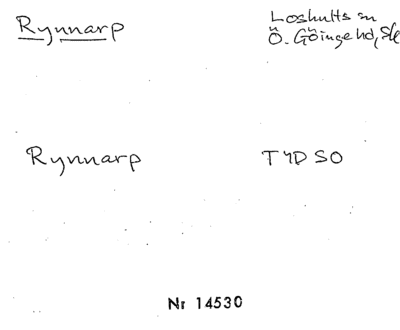 Rynnarp
Loshults sn
Ö. Göinge hd, Sk
Rynnarp
TYDSO
Nr 14530